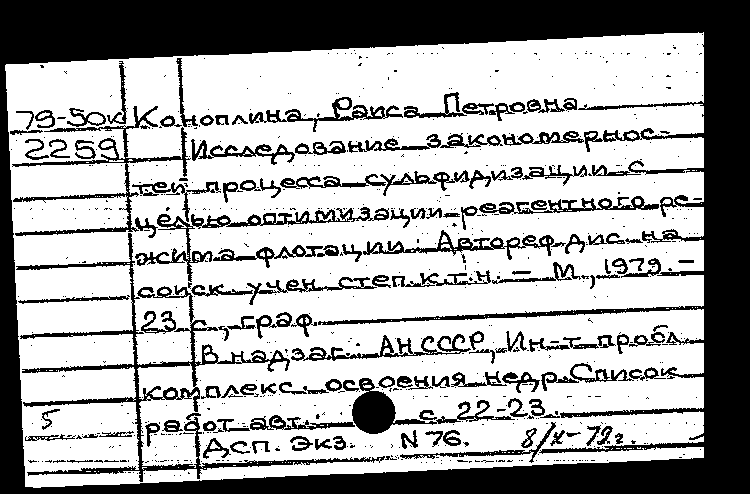 79-50к Коноплина, Раиса Петровна.
2259 Исследование закономернос-
тей процесса сульфидизации с
целью оптимизации реагентного ре-
жима флотации: Автореф. дис. на
соиск. учен. степ. к.т.н. – М., 1979. –
23 с., граф.
В надзаг.: АН СССР, Ин-т пробл.
комплекс. освоения недр. Список
5 работ авт.: с. 22-23.
ДСП. Экз. N 76. 8/X-79г.